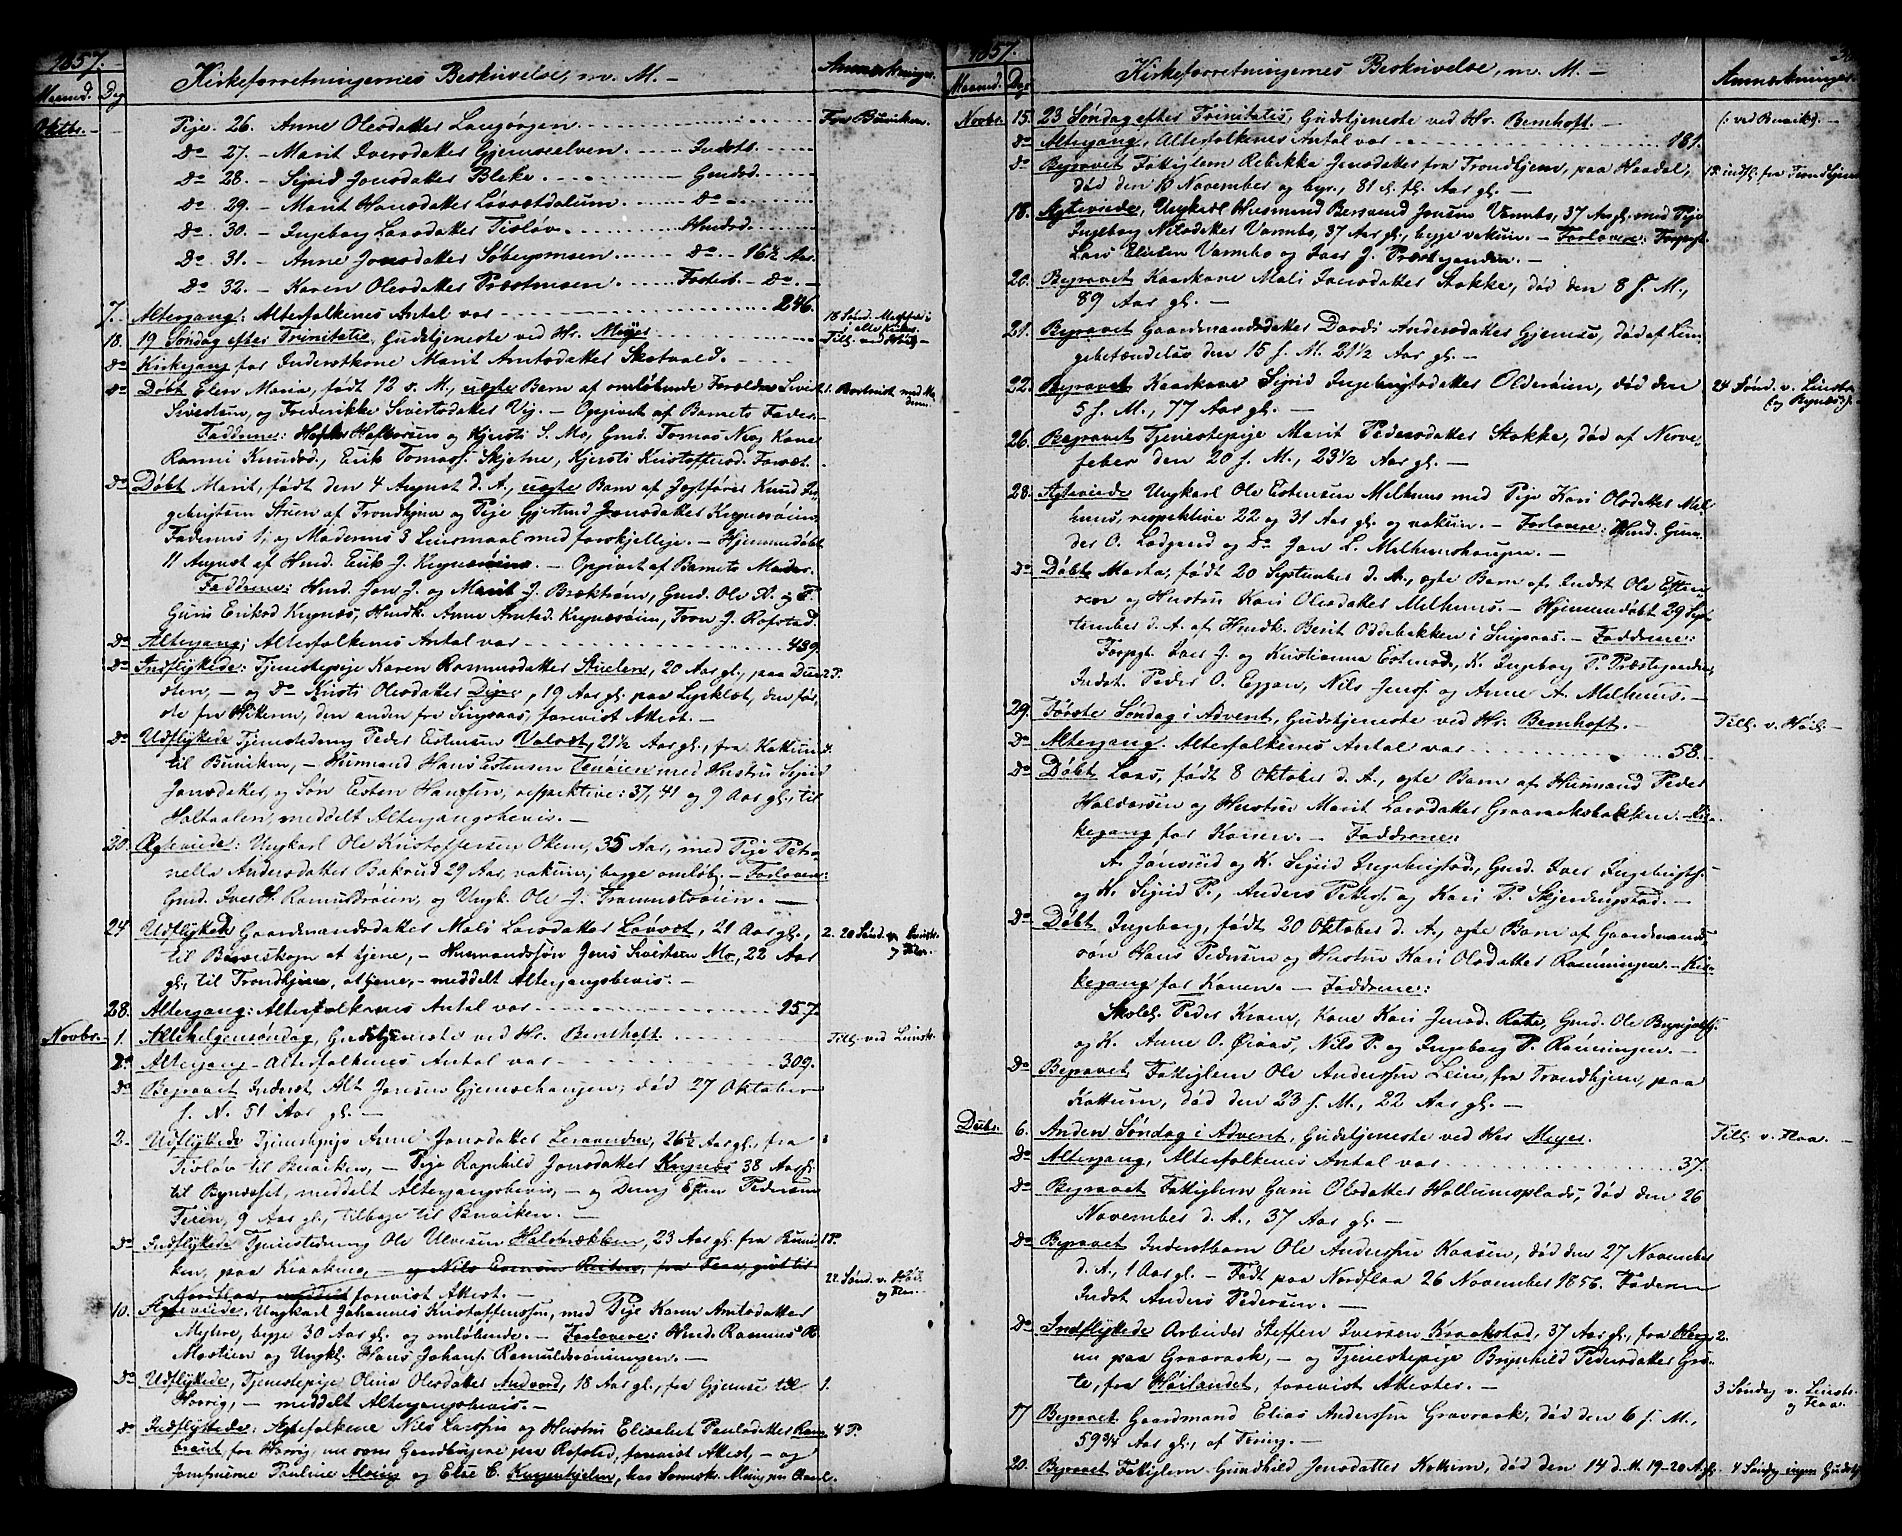 1857.
Maaned. Dag
Kirkeforretningernes Beskrivelse, m. M. —
Anmærkninger.
Oktbr. Pige. 26. Anne Olesdatter Langørgen Fra Buviken.
Do 27. — Marit Iversdatter Gjemseelven Inderst.
Do 28. — Sigrid Jonsdatter Bleke Gmdsd.
Do 29. — Marit Hansdatter Løvsetdalum Do —
Do 30. — Ingeborg Larsdatter Tisløv Hmdsd.
Do 31. — Anne Jonsdatter Søbergsmoen Do — 16½ Aar.
Do 32. — Karen Olesdatter Præstmoen Fosterb. — Do —
7. Altergang: Alterfolkenes Antal var 246.
18. 19 Søndag efter Trinitatis, Gudstjeneste ved Hr. Meyer
Do Kirkegang for Inderstkone Marit Arntsdatter Skotvold. —
Do Døbt Elen Maria, født 12 s. M., uægte Barn af omløbende Forældre Sivert
Sivertsen, og Frederikke Sivertsdatter Vig. — Opgivet af Barnets Fader.
Faddrene: Halvorsen og Kjersti S. Mo, Gmd. Tomas Neeg Kone
Ranni Knudsd., Erik Tomass. Skjetne, Kjersti Kristoffersd. Forset.
Do Døbt Marit, født den 4 August d. A., uægte Barn af Jagtfører Knud In-
gebrigtsen Stuen af Trondhjem og Pige Gjertrud Jonsdatter Kregnesøien
Faderens 1, og Moderens 3 Leiermaal med forskjellige. — Hjemmedøbt
11 August af Hmd. Erik J. Kregnesøien. — Opgivet af Barnets Moder.
Faddrene: Hmd. Jon J. og Marit J. Brækteøien, Gmd. Ole A. og F.
Guru Eriksd Kregnes, Hmdk. Anne Arntsd. Kregnesøien, Iver J. Rofstad.
Do Altergang; Alterfolkenes Antal var 489.
Do Indflyttede: Tjenestepige Karen Rasmusdatter Stuelen, 20 Aar gl., paa
— og Do Kirsti Olesdatter Digre, 19 Aar gl. paa Lysklæt, den før-
ste fra Vikerne, den anden fra Singsaas, forevist Attest. —
Do Udflyttede Tjenestedreng Peder Estensen Valset, 21½ Aar gl., fra Kattem
til Buviken, — Husmand Hans Estensen Tenøien med Hustru Sigrid
Jonsdatter, og Søn Esten Hanssen, respektive: 37, 41 og 9 Aar gl., til
Holtaalen, meddelt Altergangsbevis. —
20. Ægteviede: Ungkarl Ole Kristoffersen Okem, 35 Aar, med Pige Petro-
nella Andersdatter Bakrud 29 Aar, vakuin; begge omløb. — Forlovere:
Gmd. Iver H. Ramusdrøien, og Ungk. Ole J.
24 Udflyttede Gaardmandsdatter Mali Larsdatter Løvset, 21 Aar gl.,
til Børseskogn at tjene, — Husmandssøn Jens Sivertsen Mo, 22 Aar
gl., til Trondhjem, at tjene, — meddelt Altergangsbevis. —
28. Altergang: Alterfolkenes Antal var 157.
Novbr. 1. Allehelgensøndag, Gudstjeneste ved Hr. Bernhoft. Till. ved Leinstr.
Do Altergang — Alterfolkenes Antal var 309.
Do Begravet Inderst Alt Jonsen Gjemsehaugen, død 27 Oktober
s. A. 51 Aar gl. —
2. Udflyttede Tjenestepige Anne Jonsdatter Leraanden, 26½ Aar gl., fra
Tisløv til Buviken, — Pige Ragnhild Jonsdatter Kregnes 38 Aar gl.
til Bynesset, meddelt Altergangsbevis, — og Dreng Esten Pedersen
9 Aar gl., tilbage til Buviken. —
Do Indflyttede Tjenestedreng Ole Ulvesen 23 Aar gl. fra
ken, paa
forevist Attest. —
10. Ægteviede, Ungkarl Johannes Kristoffersen, med Pige Karen Arntsdatter
Myhre, begge 30 Aar gl. og omløbende. — Forlovere: Hmd. Rasmus R.
Mostien og Ungk. Hans Johans.
Do Udflyttede, Tjenestepige Olina Olesdatter Andvord, 18 Aar gl., fra Gjemse til
Horrig, — meddelt Altergangsbevis. —
Do Indflyttede: Ægtefolkene Nils Larssen og Hustru Elisabet Paulsdatter
fra Horrig, nu som Gaardbrugere paa Rofstad, forevist Attest, — og
Jomfruerne Pauline Alsing og Else C.
1857.
Maaned. Dag
Kirkeforretningernes Beskrivelse, m. M. —
Anmærkninger.
Novbr. 15. 23 Søndag efter Trinitatis, Gudstjeneste ved Hr. Bernhoft. —
Do Altergang, Alterfolkenes Antal var 181.
Do Begravet Fattiglem Rebekka Jensdatter fra Trondhjem, paa Hasdal,
død den November og begr., 81 Aar gl. —
18. Ægteviede, Ungkarl Husmand Bersvend Jonsen Varmbo, 37 Aar gl. med Pige
Ingeborg Nilsdatter Varmbo, 37 Aar gl., begge vakuin. — Forlovere:
Lars Elisen Varmbo og Iver J. Præstegaarden. —
20. Begravet Kaarkone Mali Jonsdatter Stokke, død den 8 s. M.,
89 Aar gl. —
21. Begravet Gaardmandsdatter Dordi Andersdatter Gjemse, død af Lun-
gebetændelse den 15 s. M. 21½ Aar gl. —
22. Begravet Kaarkone Sigrid Ingebrigtsdatter Olderøien, død den
5 s. M., 77 Aar gl. —
26. Begravet Tjenestepige Marit Pedersdatter Stokke, død af Nerve-
feber den 20 s. M., 23½ Aar gl. —
28. Ægteviede Ungkarl Ole Estensen Melhuus med Pige Kari Olsdatter Mel-
huus, respektive 22 og 31 Aar gl. og vakuin. — Forlovere: Hmd. Gun-
der O. Ladgard og Do Jon L. Melhuushaugen. —
Do Døbt Marta, født 20 September d. A., ægte Barn af Indst Ole Esten-
sen og Hustru Kari Olesdatter Melhuus. — Hjemmedøbt 29 Sep-
tember d. A. af Hmdk. Berit Oddebakken i Singsaas. — Faddrene:
Forpgt. Iver J. og Kristianna Estensd., K. Ingeborg P. Præstegaarden,
Inderst. Peder O. Eggen, Nils Jenss. og Anne A. Melhuus. —
29. Første Søndag i Advent, Gudstjeneste ved Hr. Bernhoft. — Till. v. Høil. —
Do Altergang. Alterfolkenes Antal var 58.
Do Døbt Lars, født 8 Oktober d. A., ægte Barn af Husmand Peder
Halvorsen og Hustru Marit Larsdatter Graaroksbakken. — Kir-
kegang for Konen. — Faddrene:
A. Jønsrud og K. Sigrid Ingebrigtsd., Gmd. Iver Ingebrigts.
og K. Sigrid P., Anders Petters. og Kari P. Skjerdingstad. —
Do Døbt Ingeborg, født 20 Oktober d. A., ægte Barn af Gaardmands-
søn Hans Pedersen og Hustru Kari Olsdatter Rømningen. — Kir-
kegang for Konen. — Faddrene:
Skolel. Peder Kroen, Kone Kari Jensd. Rate, Gmd. Ole Brynjulfs.
og K. Anne O. Øiaas, Nils P. og Ingeborg P. Rømningen. —
Do Begravet Fattiglem Ole Anderssen Lein, fra Trondhjem, paa
Kattem, død den 23 s. M., 22 Aar gl. —
Decbr. 6. Anden Søndag i Advent, Gudstjeneste ved Her Meyer. Till. v. Flaa. —
Do Altergang, Alterfolkenes Antal var 37.
Do Begravet Fattiglem Guri Olsdatter Hollumsplads, død den 26
November d. A., 37 Aar gl. —
Do Begravet Inderstbarn Ole Anderssen Kaasen, død den 27 November
d. A., 1 Aar gl. — Født paa Nordflaa 26 November 1856. Faderen
Indst Anders Pedersen. —
Do Indflyttede Arbeider Steffen Iversen Kraakstad, 37 Aar gl., fra 2.
nu paa Graarok, — og Tjenestepige Brynhild Pedersdatter Gra-
te, fra Høilandet, forevist Attester. —
3 Søndag v. Leinstr. og Flaa.
17 Begravet Gaardmand Elias Anderssen Gravraak, død den 6 s. M.,
59¾ Aar gl., af Tæring. —
20. Begravet Fattiglem Gundhild Jonsdatter Kattem, død den 14 d. M. 19–20 A. gl. 4 Søndag ingen Gudstj.